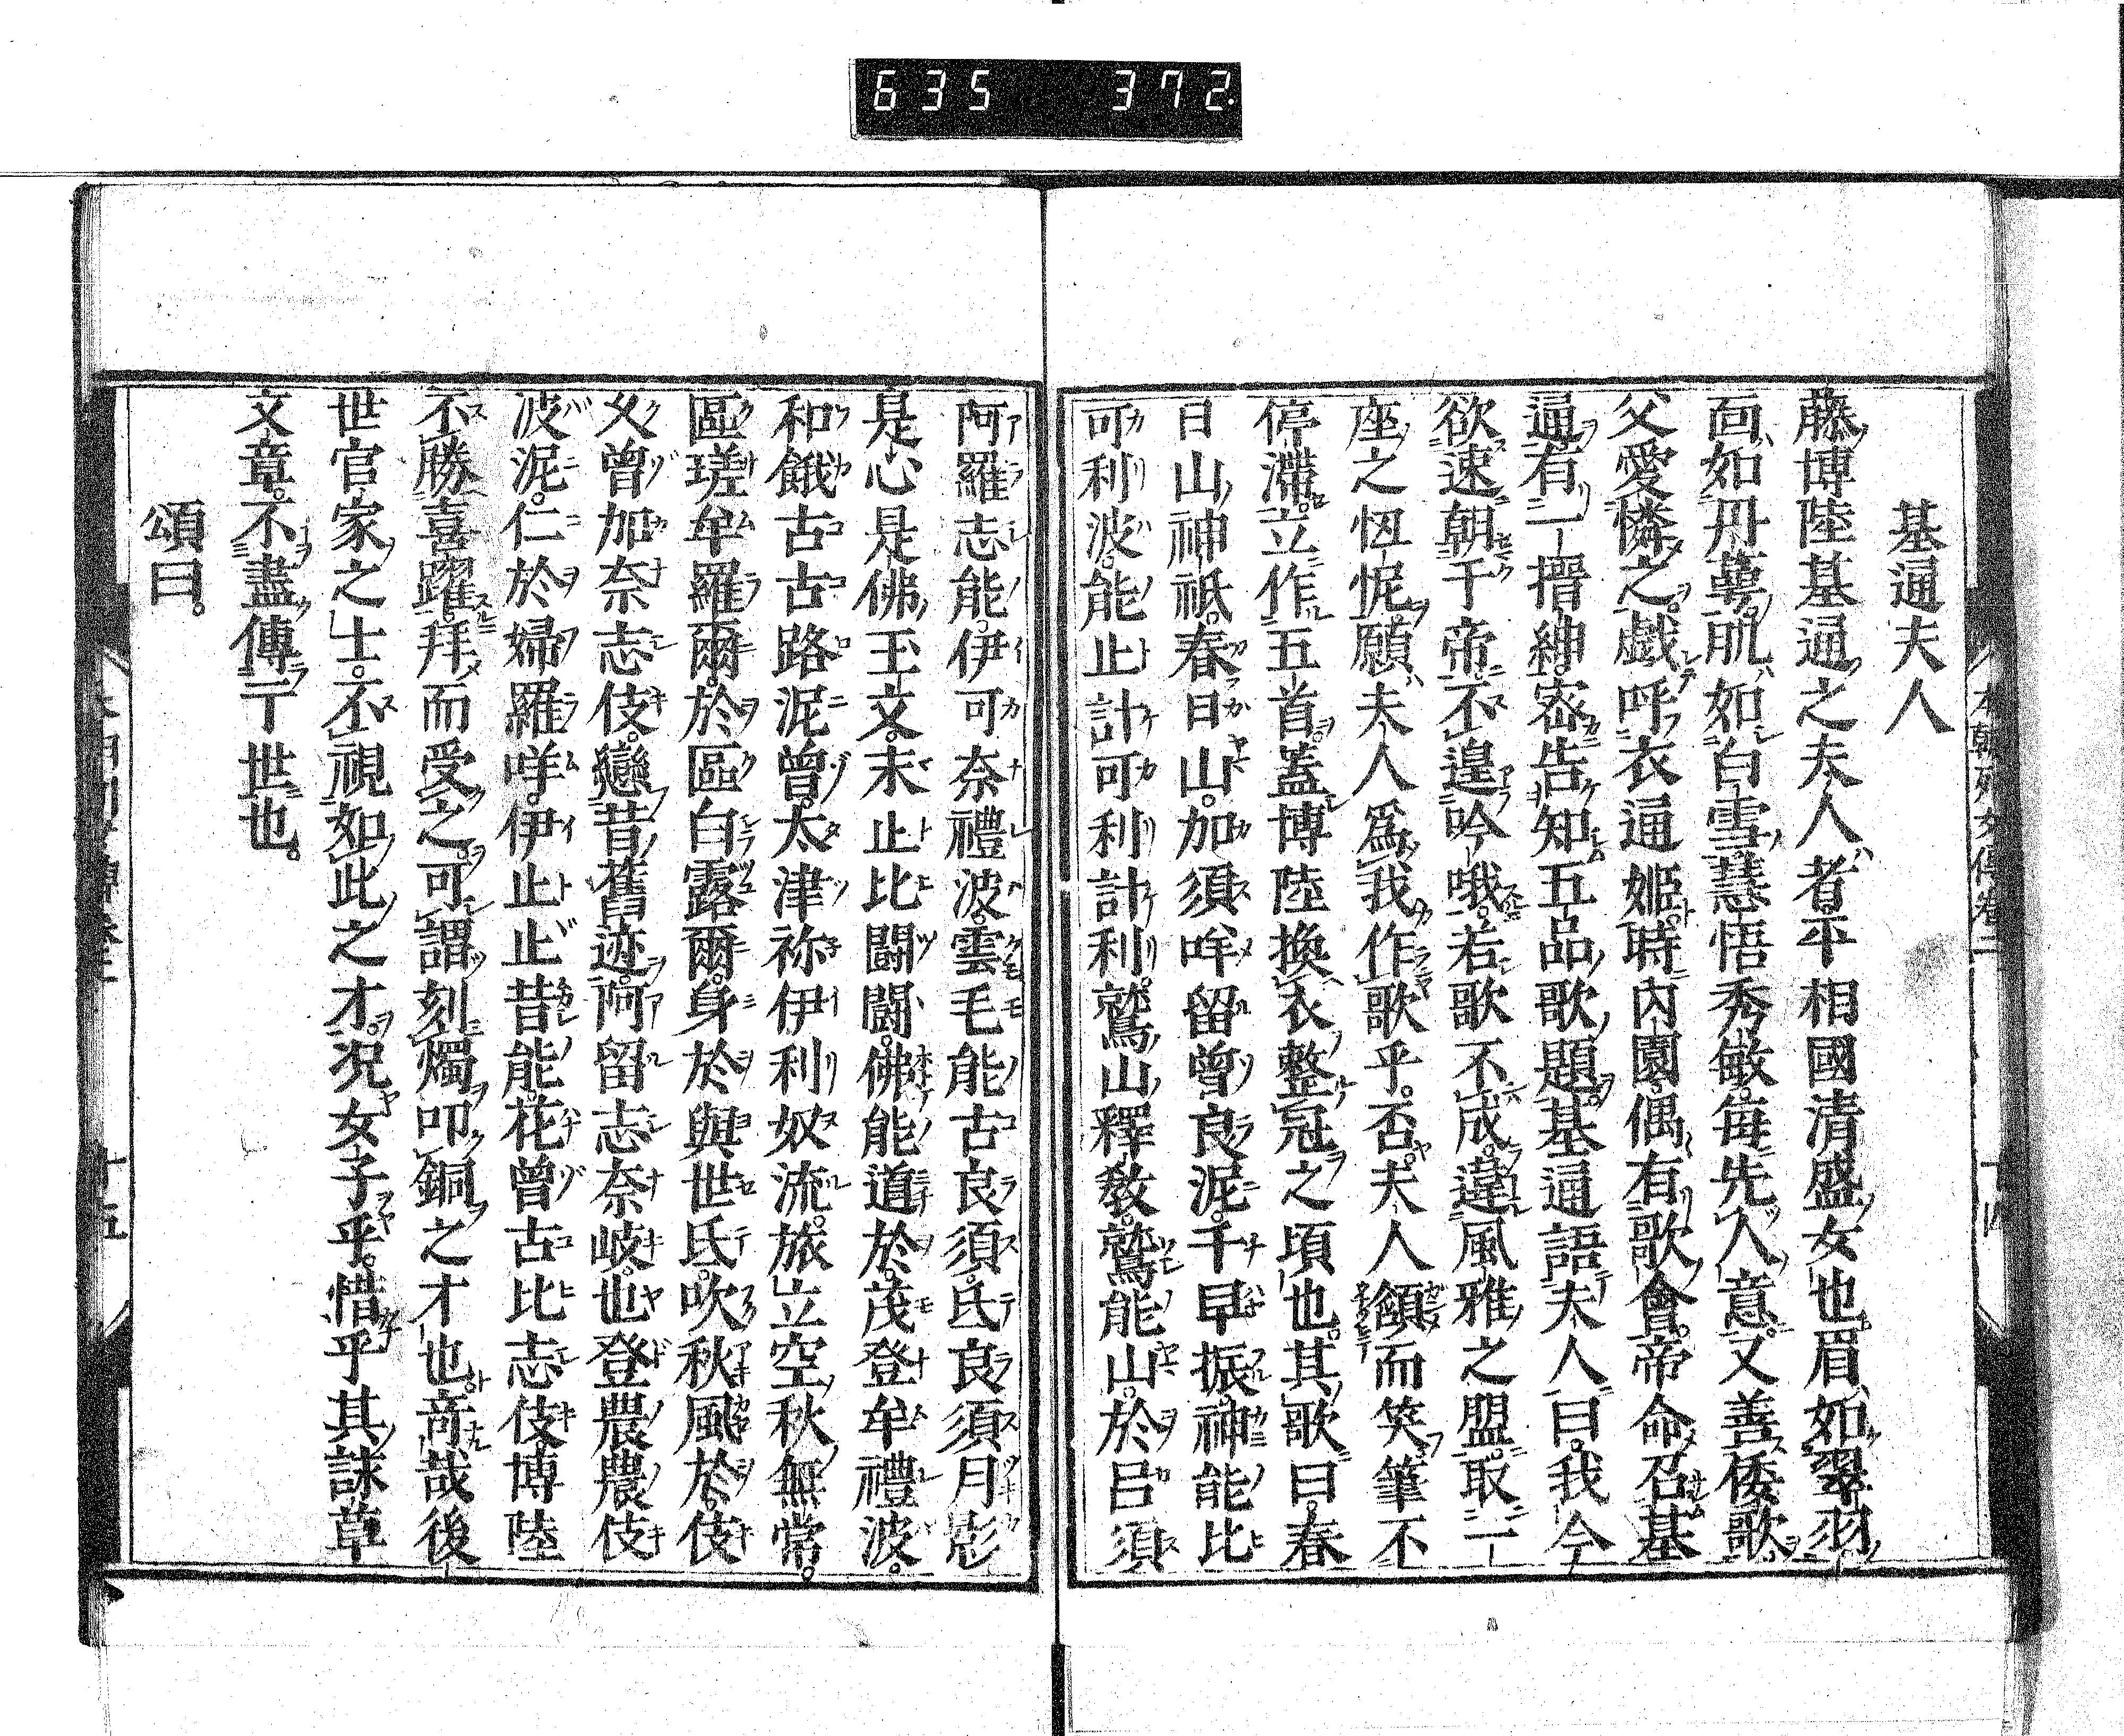 635 372
基通夫人
藤博陸基通之夫人者平相國清盛女也眉如翠羽
面如丹蕚肌如白雪慧悟秀敏每先人意又善倭歌
父愛憐之戯呼衣通姬時內園偶有歌會帝命召基
通有一搢紳密告知五品歌題基通語夫人曰我今
欲速朝于帝不遑吟哦若歌不成違風雅之盟取一
座之忸怩願夫人爲我作歌乎否夫人頷而笑筆不
停滯立作五首蓋博陸換衣整冠之頃也其歌曰春
日山神祇春日山加須哞留曾良泥千早振神能比
可利波能止計可利計利鷲山釋敎鷲能山於呂須
阿羅志能伊可奈禮波雲毛能古良須氐良須月影
是心是佛王文末止比闘闘佛能道於茂登牟禮波
和餓古古路泥曾太津祢伊利奴流旅立空秋無常
區瑳牟羅爾於區白露爾身於與世氐吹秋風於伎
久曾加奈志伎戀昔舊迹阿留志奈岐也登農農伎
波泥仁於婦羅咩伊止止昔能花曾古比志伎博陸
不勝喜躍拜而受之可謂刻燭叩銅之才也奇哉後
世官家之士不視如此之才况女子乎惜乎其誄草
文章不盡傳于世也
頌曰
本朝列女傳卷二
十五